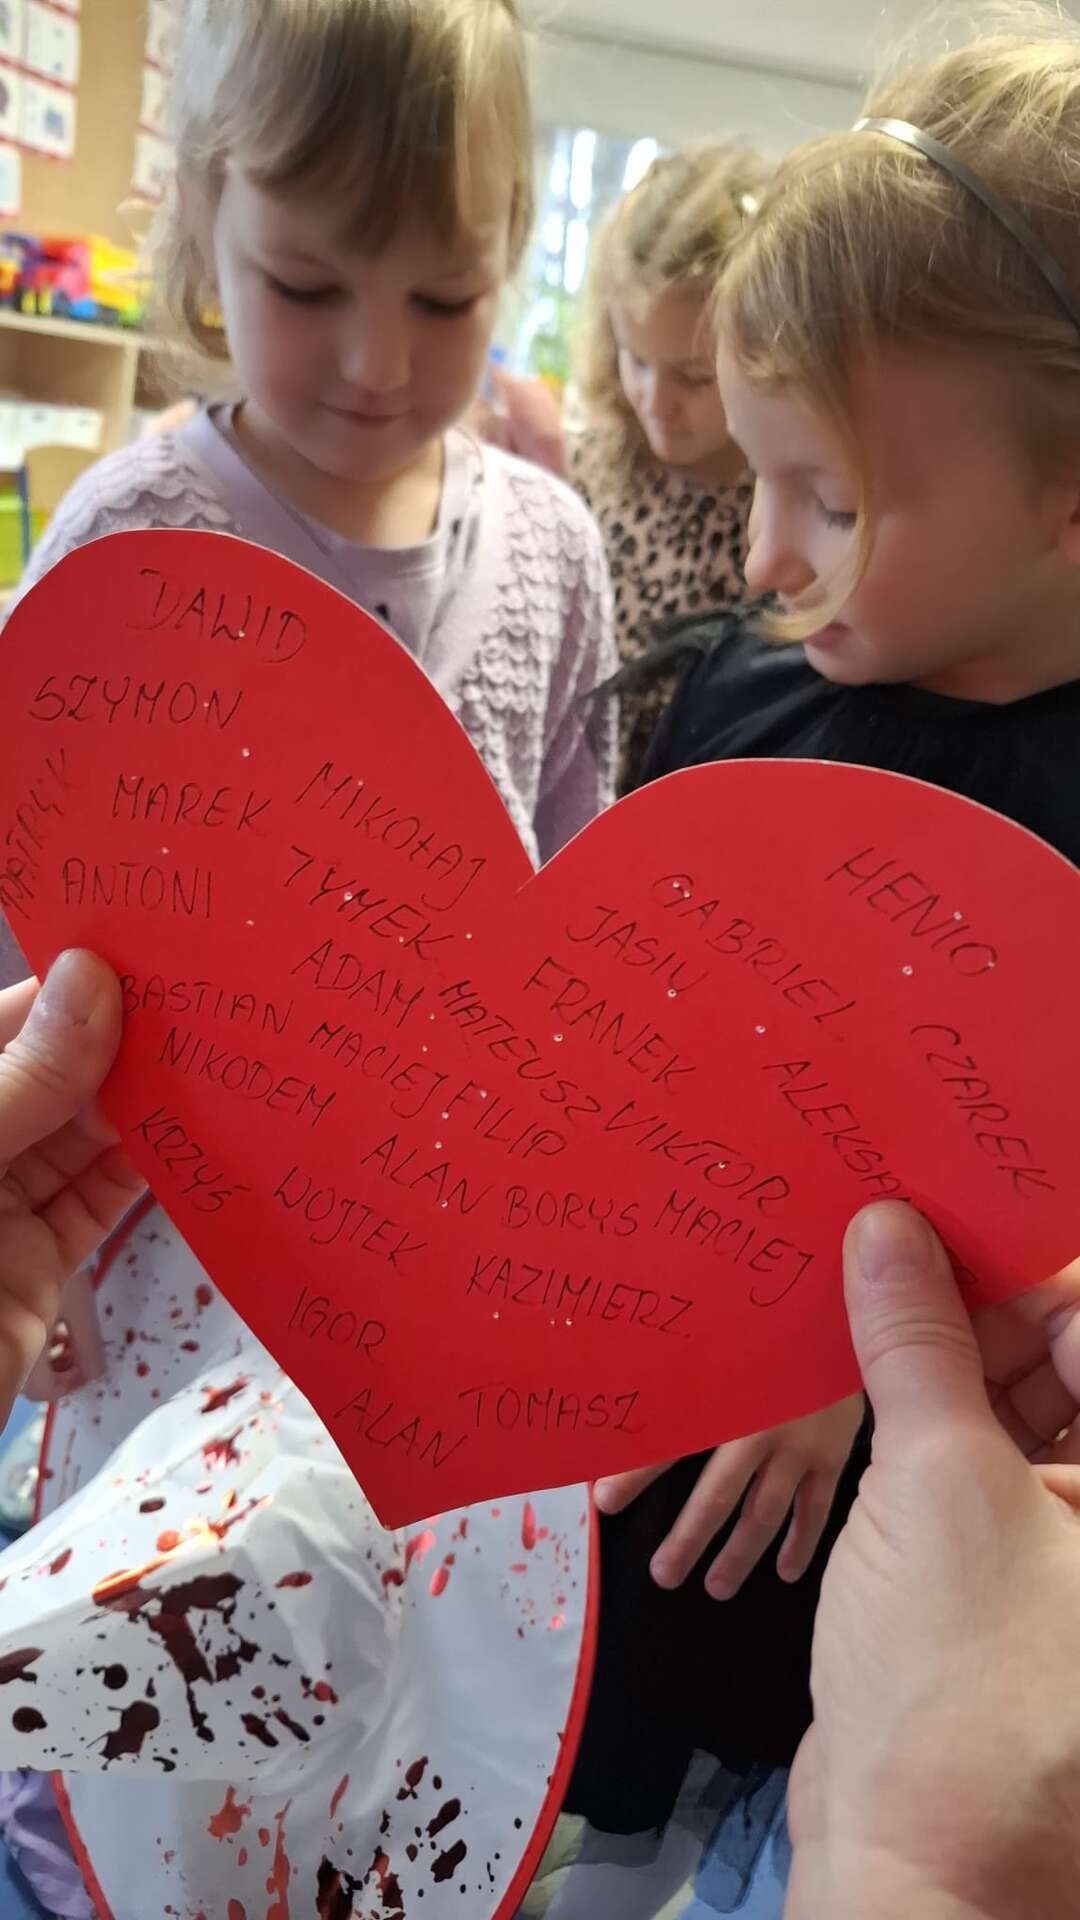 DAWID
SZYMON
PATRYK
MAREK
MIKOŁAJ
ANTONI
TYMEK
ADAM
MATEUSZ
BASTIAN
MACIEJ
FILIP
NIKODEM
KRZYŚ
ALAN
BORYS
WOJTEK
KAZIMIERZ
IGOR
ALAN
TOMASZ
HENIO
GABRIEL
JASIU
FRANEK
CZAREK
WIKTOR
MACIEJ